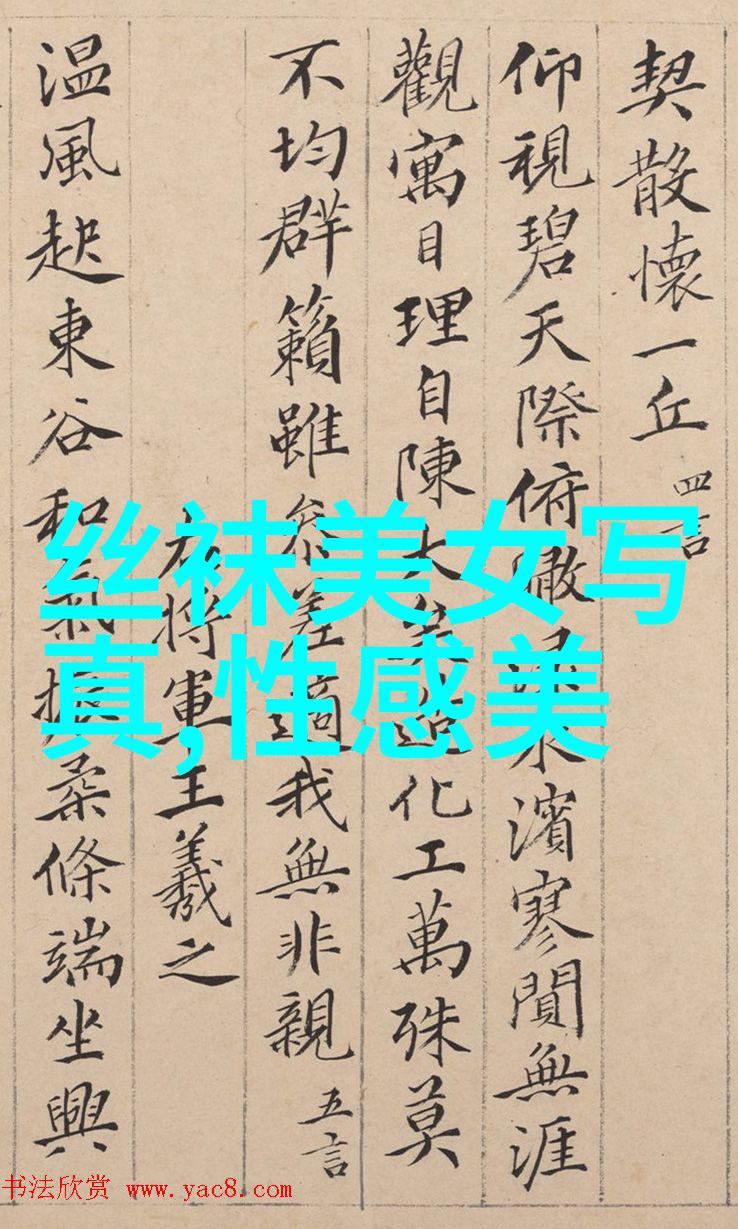 契散懷一丘 四言
仰視碧天際俯瞰水濱寥閴無涯
觀寓目理自陳大矣造化工萬殊莫
不均群籟雖参差適我無非親 五言
右將軍王羲之
温風起東谷和氣振柔條端坐興
丝袜美女写
真,性感美
书法欣赏 www.yac8.com